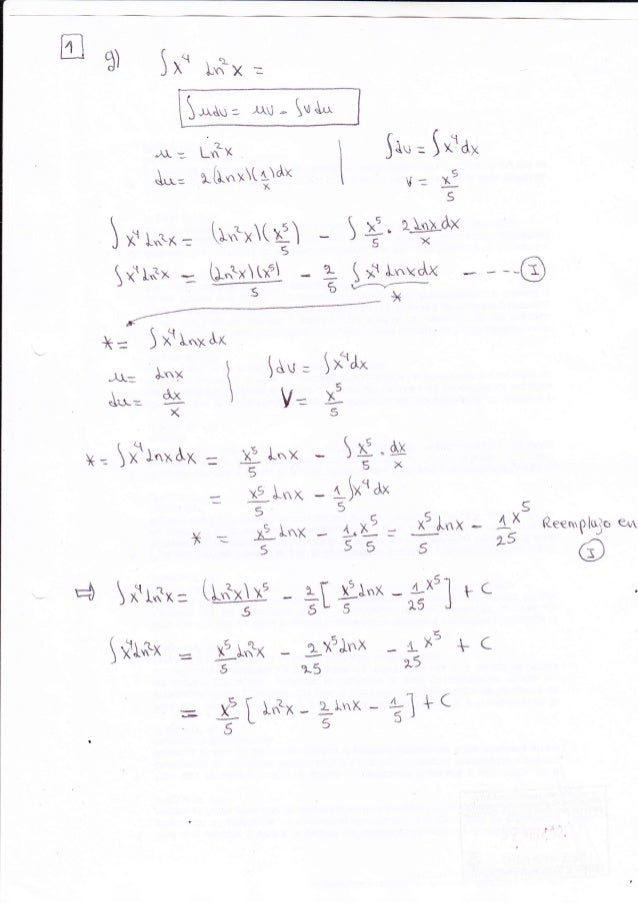 1 g) ∫x⁴ Ln²x =
∫udv = uv - ∫vdu
u = Ln²x | ∫dv = ∫x⁴dx
du = 2(Lnx)(1/x)dx | v = x⁵/5
∫x⁴Ln²x = (Ln²x)(x⁵/5) - ∫ x⁵/5 · 2Lnxdx/x
∫x⁴Ln²x = (Ln²x)(x⁵)/5 - 2/5 ∫x⁴Lnxdx ---- I
*
* = ∫x⁴Lnxdx
u = Lnx } ∫dv = ∫x⁴dx
du = dx/x } V = x⁵/5
* = ∫x⁴Lnxdx = x⁵/5 Lnx - ∫ x⁵/5 · dx/x
= x⁵/5 Lnx - 1/5 ∫x⁴dx
* = x⁵/5 Lnx - 1/5 · x⁵/5 = x⁵/5 Lnx - 1/25 x⁵ Reemplazo en
I
⇒ ∫x⁴Ln²x = (Ln²x)x⁵/5 - 2/5 [ x⁵/5 Lnx - 1/25 x⁵ ] + C
∫x⁴Ln²x = x⁵/5 Ln²x - 2/25 x⁵Lnx - 1/25 x⁵ + C
= x⁵/5 [ Ln²x - 2/5 Lnx - 1/5 ] + C